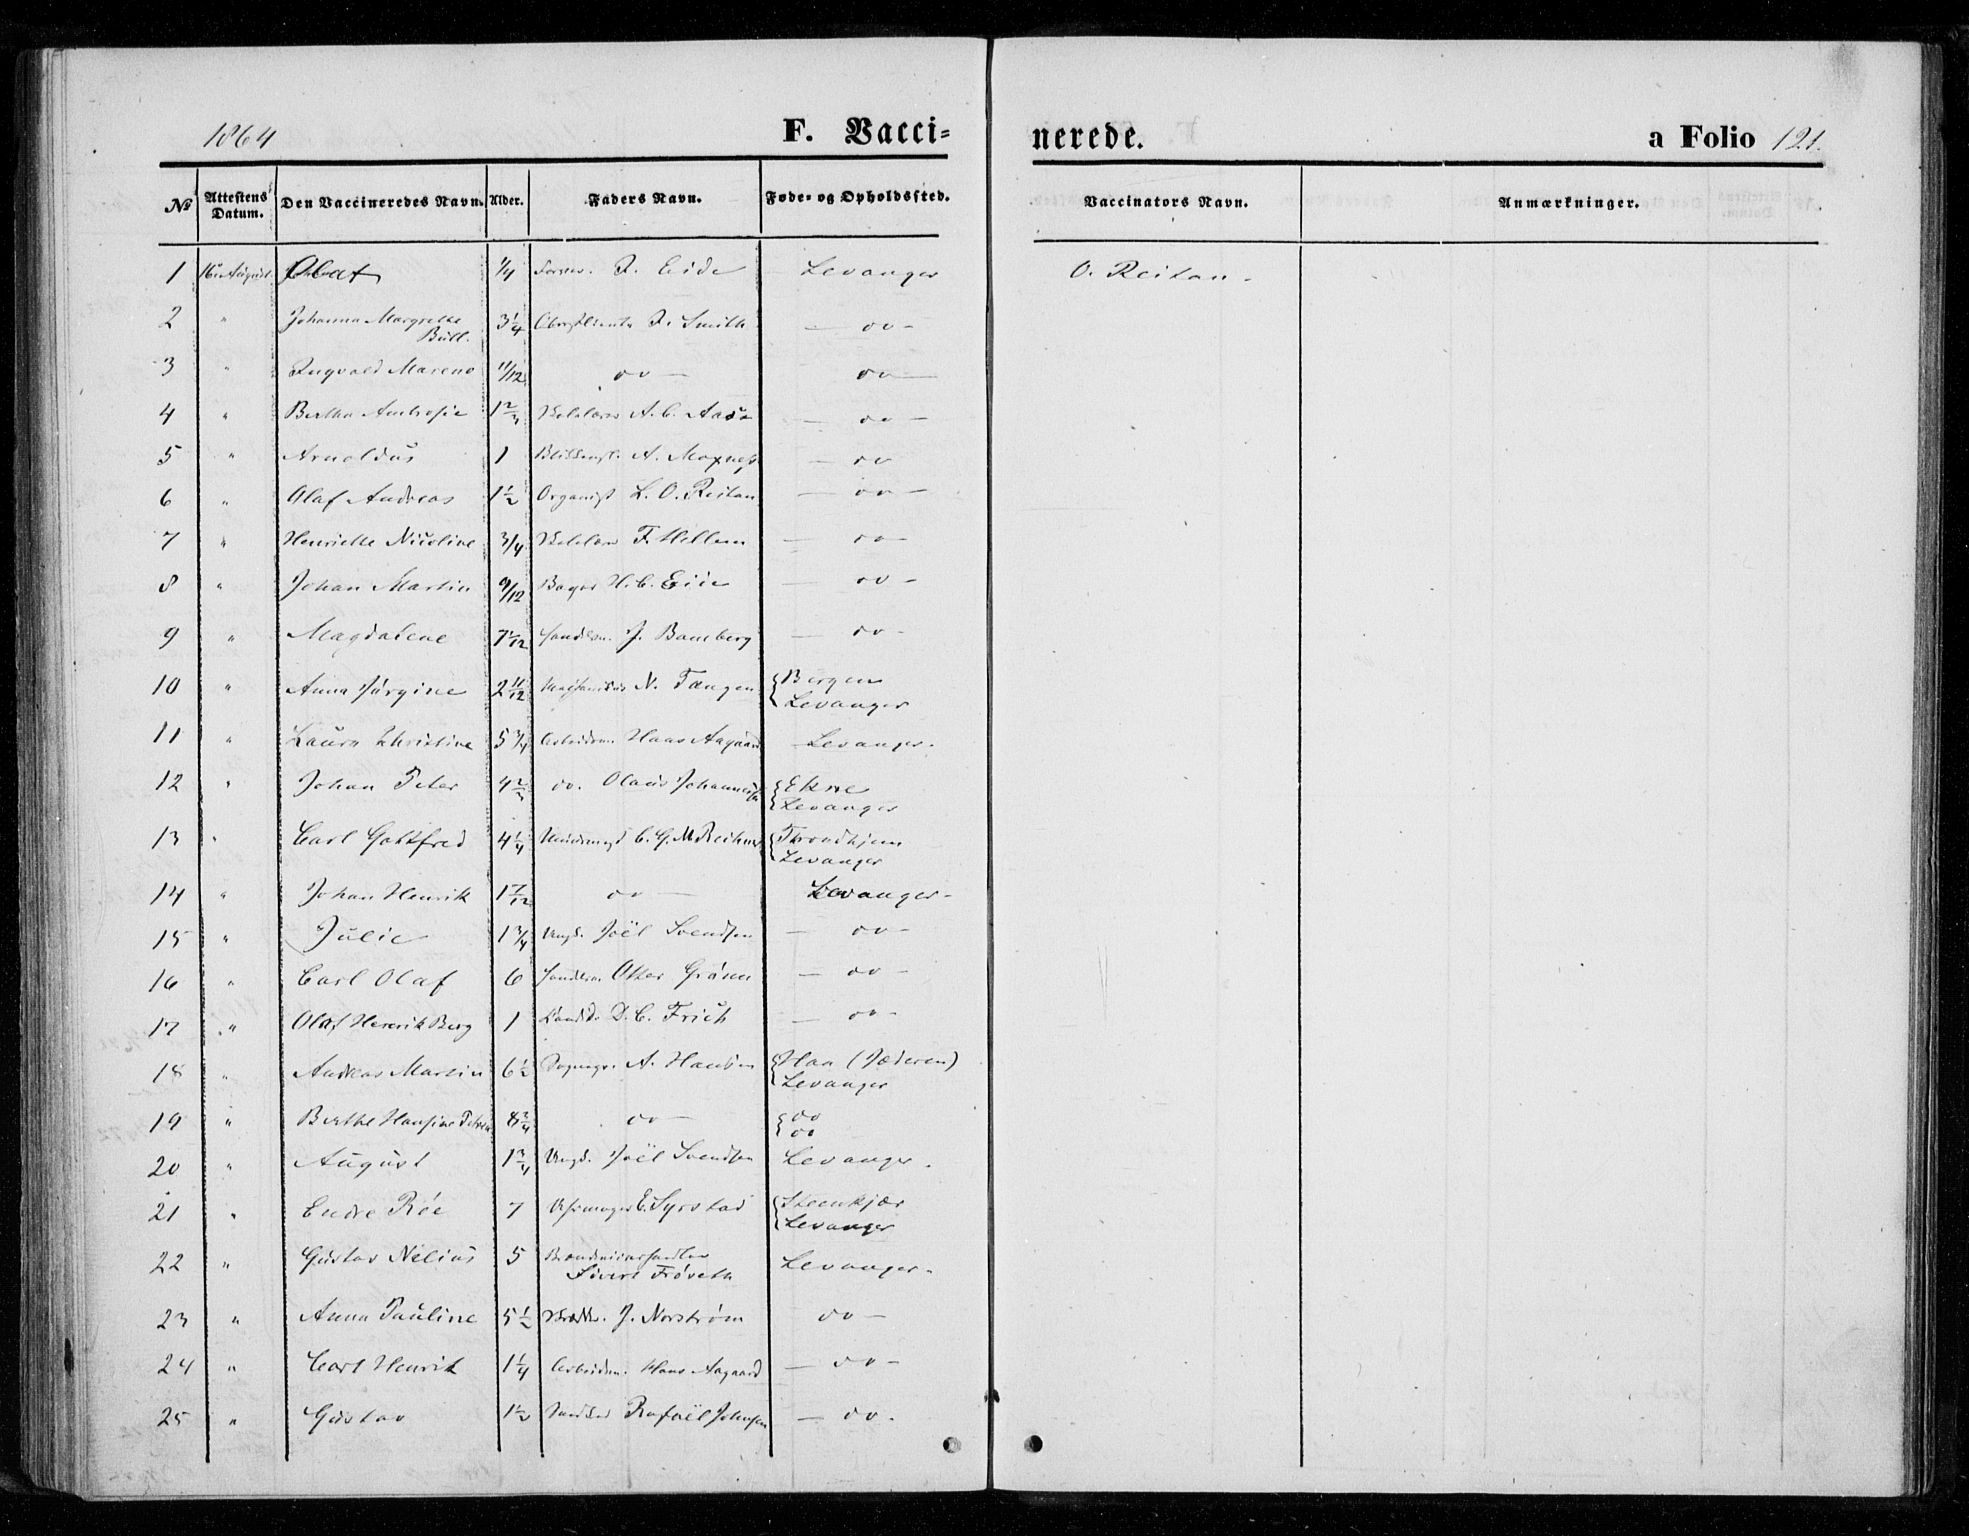 1864 F. Vacci= nerede. a Folio 121.
No Attestens Datum. Den Vaccineredes Navn. Alder. Faders Navn. Føde- og Opholdssted. Vaccinators Navn. Anmærkninger.
1 16 August. Olaf 1/4 J. Eide Levanger O. Reitan.
2 " Johanna Margrethe
Bull. 3 1/4 J. Smith — do —
3 " Ingvald Mareno 11/12 do — do —
4 " Bertha Ambrosie 1 2/3 A. C. Aas — do —
5 " Arnoldus 1 A. Moxness — do
6 " Olaf Andreas 1 1/2 Organist L. O. Reitan — do —
7 " Henriette Nicoline 3/4 F. Hellem — do —
8 " Johan Martin 9/12 Bager H. C. Eide — do —
9 " Magdalene 7/12 Handelsm. J. Bamberg — do —
10 " Anna Jørgine 2 11/12 N. Tangen { Bergen
Levanger
11 " Laura Christine 5 3/4 Arbeidsm. Hans Aagaard Levanger.
12 " Johan Peter 4 2/3 do. Olaus Johannessen { Ekne
Levanger
13 " Carl Gottfred 4 1/4 C. G. M. { Throndhjem
Levanger
14 " Johan Henrik 1 7/12 do — Levanger —
15 " Julie 1 3/4 Joël Svendsen — do —
16 " Carl Olaf 6 Handelsm. Otter Grønn — do —
17 " Olaf Henrik Berg 1 D. C. Frich — do —
18 " Andreas Martin 6 1/2 A. Hansen { Haa (Jæderen)
Levanger
19 " Berthe Hansine 8 3/4 do — { do
do
20 " August 1 3/4 Joël Svendsen Levanger.
21 " Endre Röe 7 Uhrmager E. Syrstad { Steenkjær
Levanger
22 " Gustav Nelius 5 Brændeviinshandler
Sivert Frøseth Levanger.
23 " Anna Pauline 5 1/2 J. Norstrøm do —
24 " Carl Henrik 1 1/4 Arbeidsm. Hans Aagaard — do —
25 " Gustav 1 1/2 Rafaël Johnsen — do.